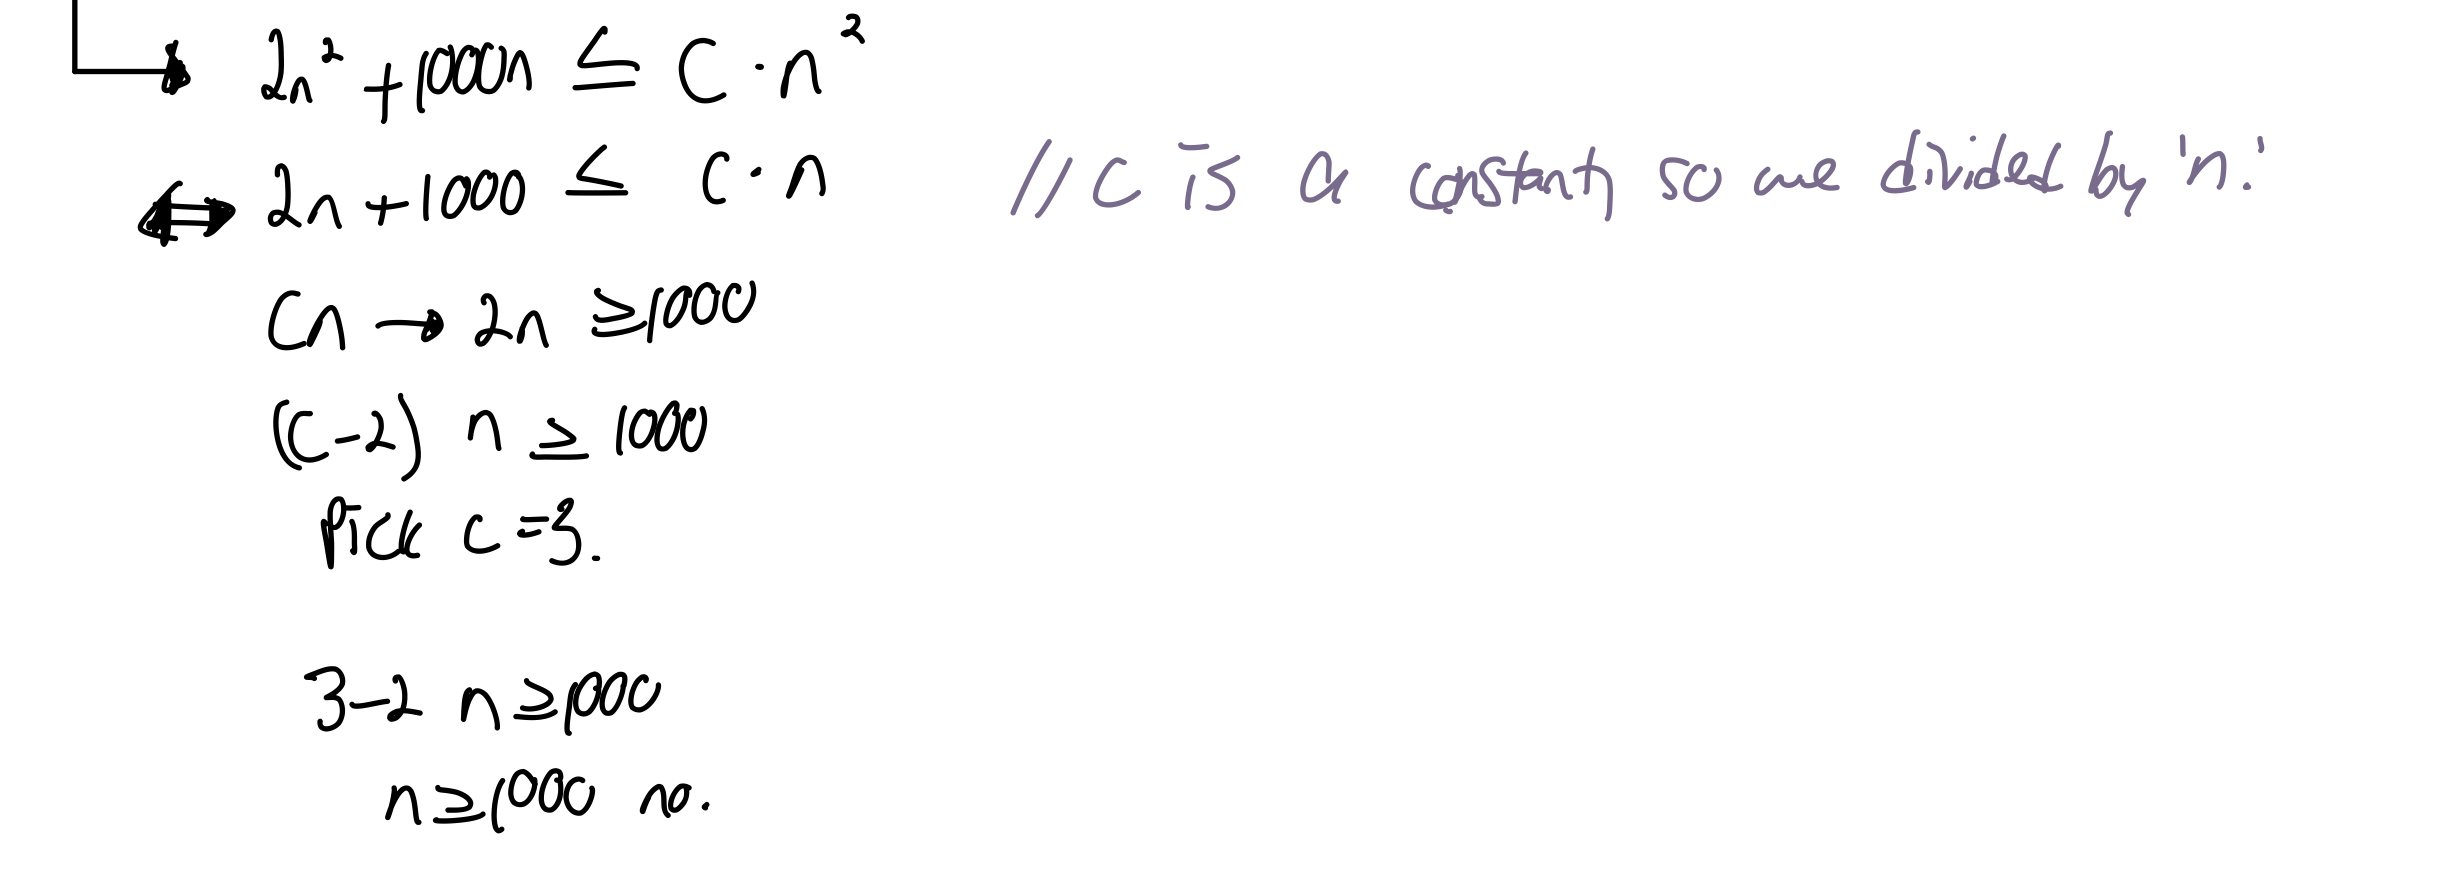 2n² + 1000n ≤ C · n²
⇔ 2n + 1000 ≤ C · n // C is a constant, so we divided by 'n'.
Cn → 2n ≥ 1000
(C-2) n ≥ 1000
Pick c = 3.
3-2 n ≥ 1000
n ≥ 1000 no.